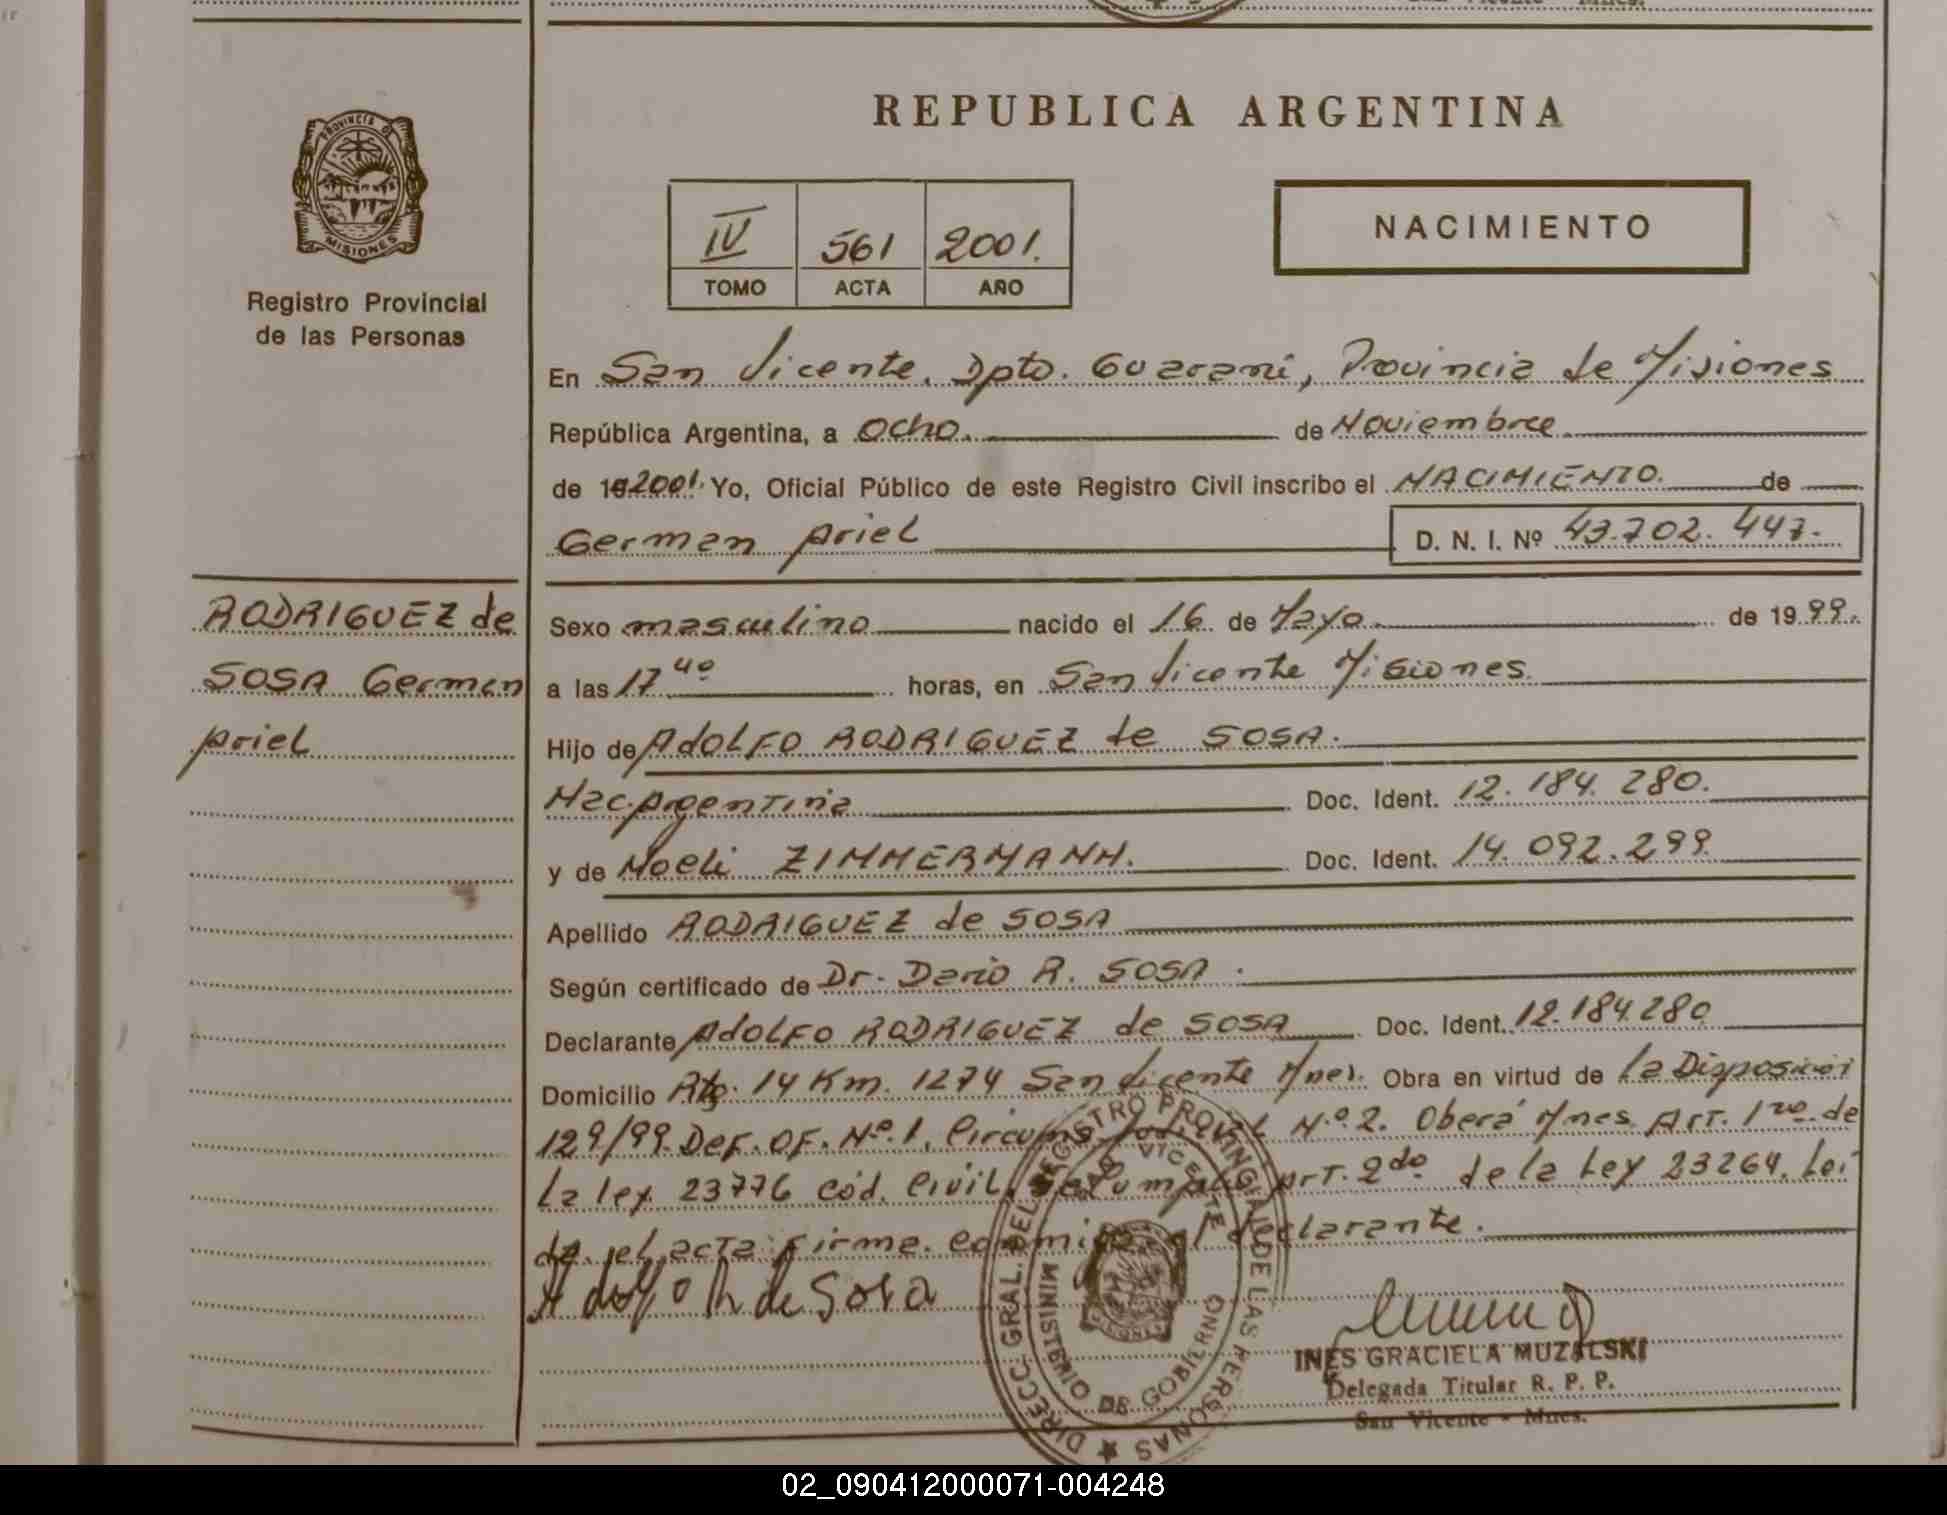 REPUBLICA ARGENTINA
PROVINCIA DE
MISIONES
Registro Provincial
de las Personas
IV 561 2001.
TOMO ACTA AÑO
NACIMIENTO
En San Vicente, Dpto. Guarani, Provincia de Misiones
República Argentina, a ocho. de Noviembre.
de 192001. Yo, Oficial Público de este Registro Civil inscribo el NACIMIENTO. de
German Ariel D. N. I. Nº 43.702.447.
RODRIGUEZ de
SOSA German
Ariel
Sexo masculino nacido el 16 de Mayo. de 1999.
a las 17 40 horas, en San Vicente Misiones.
Hijo de AdOLFO RODRIGUEZ de SOSA.
Nac. Argentina Doc. Ident. 12.184.280.
y de Noeli ZIMMERMANN. Doc. Ident. 14.092.299.
Apellido RODRIGUEZ de SOSA
Según certificado de Dr. Dario R. SOSA.
Declarante AdOLFO RODRIGUEZ de SOSA Doc. Ident. 12.184.280
Domicilio Rta. 14 Km. 1274 San Vicente Mnes. Obra en virtud de La Disposición
129/99. DEF. OF. Nº.1. Circuns. Judicial Nº.2. Oberá Mnes. ART. 1ro. de
La ley. 23776 Cód. Civil, ART. 2do de la Ley 23264. Leí
da el acta firma conmigo el declarante.
Adolfo R de Sosa
DIRECC. GRAL. DEL REGISTRO PROVINCIAL DE LAS PERSONAS
SAN VICENTE
MINISTERIO DE GOBIERNO
INES GRACIELA MUZALSKI
Delegada Titular R. P. P.
San Vicente - Mnes.
02_090412000071-004248